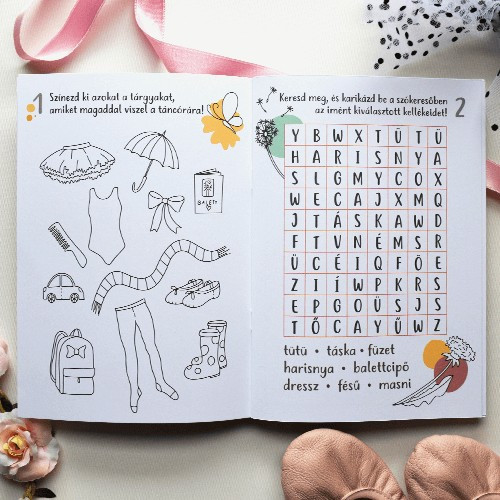 1 Színezd ki azokat a tárgyakat,
amiket magaddal viszel a táncórára!
BALETT
Keresd meg, és karikázd be a szókeresőben
az imént kiválasztott kellékeidet! 2
Y B W X T Ü T Ü
H A R I S N Y A
S L G M Y C O X
W E C A J X M Q
J T Á S K A W D
F T V N É M S R
Ü C É I Q F Ö E
Z I Í W P K R S
E P G O Ü S J S
T Ő C A Y Ű W Z
tütü • táska • füzet
harisnya • balettcipő
dressz • fésű • masni